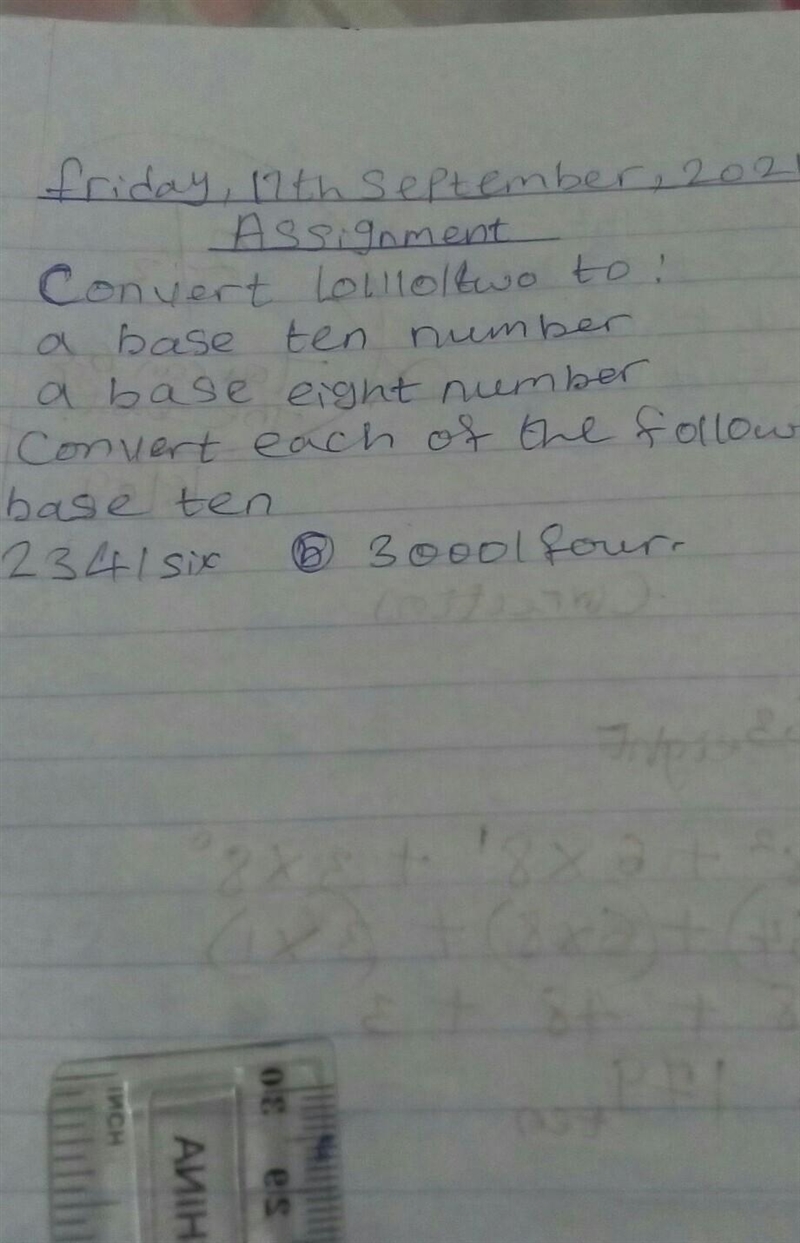 friday, 17th September, 2021
Assignment
Convert 1011101two to:
a base ten number
a base eight number
Convert each of the follow
base ten
2341six (b) 30001four.
INCH
30
29